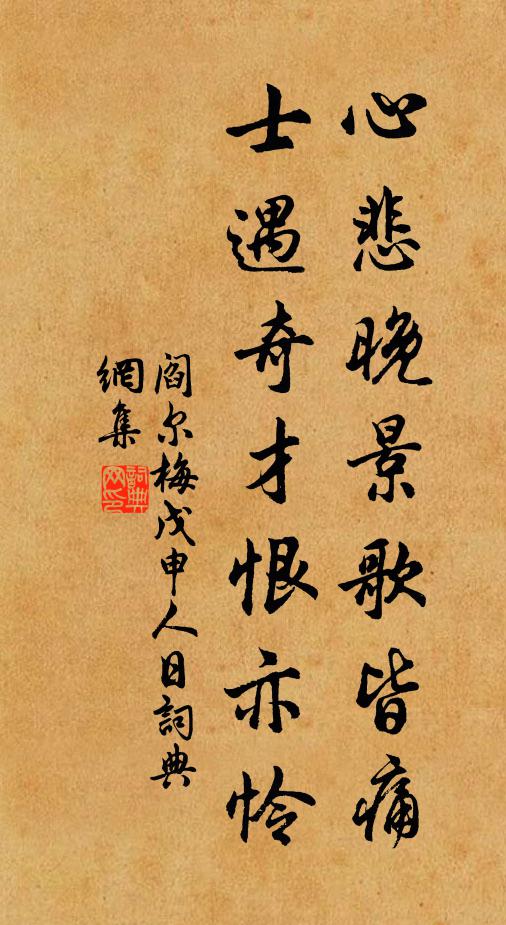 心悲晚景歌皆痛
士遇奇才恨亦怜
阎尔梅戊申人日詞典
網集
詞典
网印